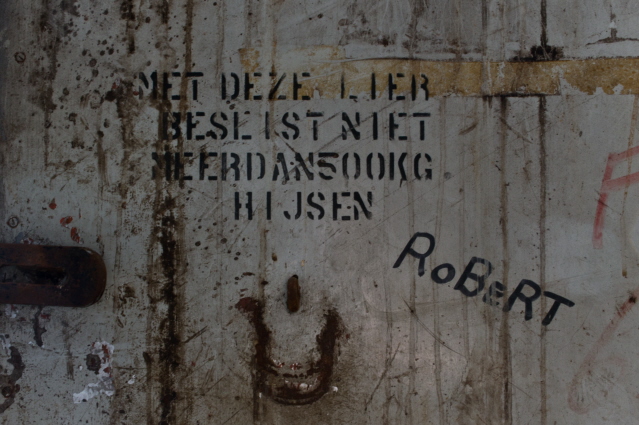 MET DEZE LIER
BESLIST NIET
MEERDAN500KG
HIJSEN
ROBERT